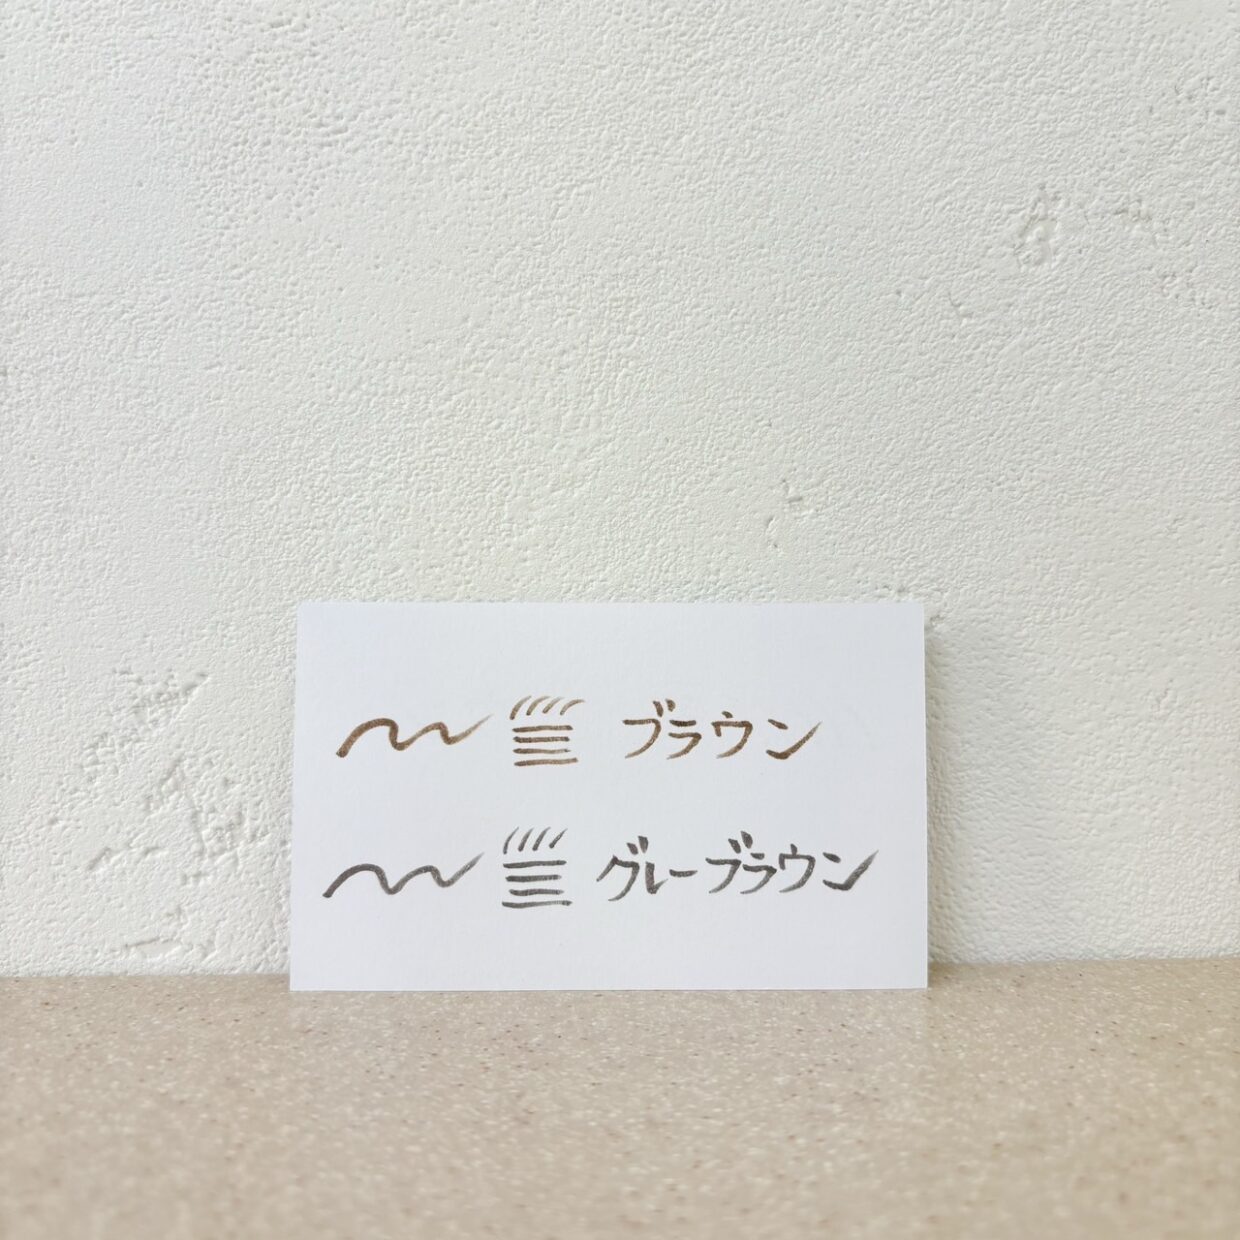 ブラウン
グレーブラウン